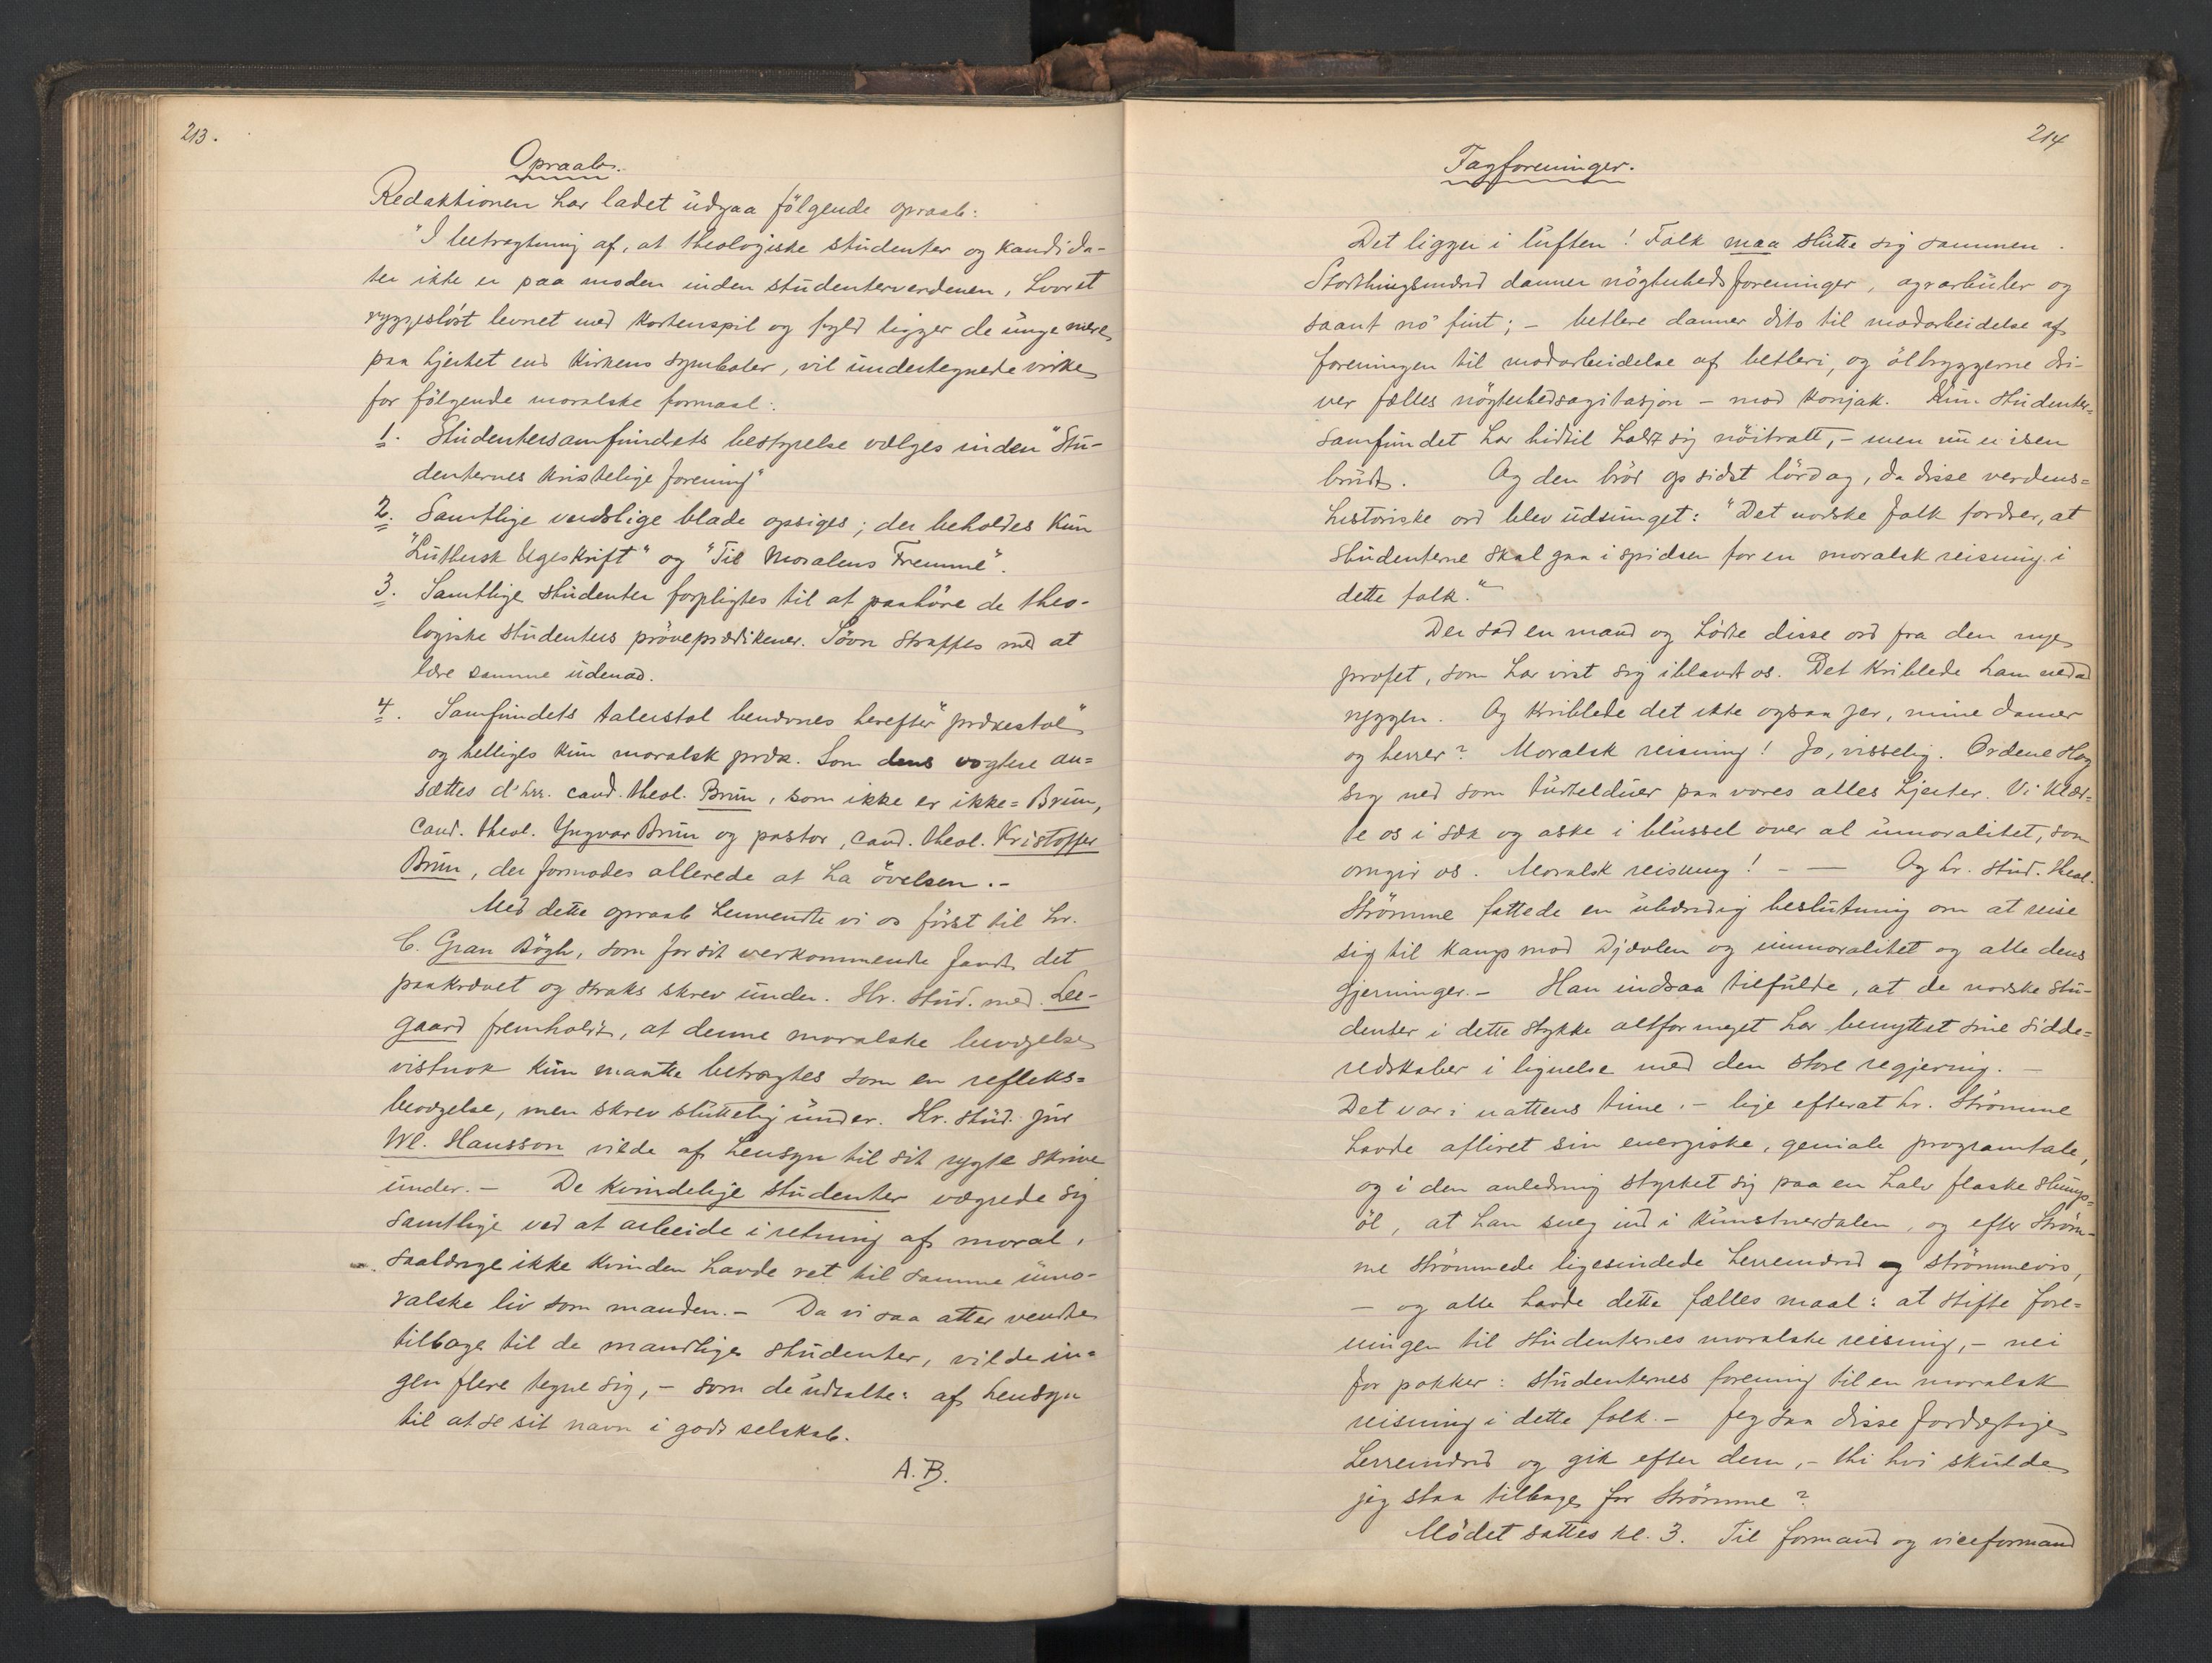 213.
Opraab.
Redaktionen har ladet udgaa følgende opraab:
"I betragtning af, at theologiske studenter og kandida-
ter ikke er paa moden inden studenterverdenen, hvor et
ryggesløst levnet med kortenspil og fyld ligger de unge mere
paa hjertet end kirkens symboler, vil undertegnede virke
for følgende moralske formaal:
1. Studentersamfundets bestyrelse vælges inden "Stu-
denternes kristelige forening"
2. Samtlige verdslige blade opsiges; der beholdes kun
"Luthersk Ugeskrift" og "Til Moralens Fremme".
3. Samtlige studenter forpligtes til at paahøre de theo-
logiske studenters prøveprædikener. Søvn straffes med at
lære samme udenad.
4. Samfundets talerstol benævnes herefter "prækestol"
og helliges kun moralsk præk. Som dens vogtere an=
sættes d'hrr. cand. theol. Brun, som ikke er ikke=Brun,
cand. theol. Yngvar Brun og pastor, cand. theol. Kristoffer
Brun, der formodes allerede at ha øvelsen.-
Med dette opraab henvendte vi os først til hr.
C. Gran Bøgh, som for sit verkommende fandt det
paakrævet og straks skrev under. Hr. stud. med. Lee-
gaard fremholdt, at denne moralske bevægelse
vistnok kun maatte betragtes som en refleks=
bevægelse, men skrev sluttelig under. Hr. stud. jur
Wl. Hansson vilde af hensyn til sit rygte skrive
under.- De kvindelige studenter vægrede sig
samtlige ved at arbeide i retning af moral,
saalænge ikke kvinden havde ret til samme umo-
ralske liv som manden.- Da vi saa atter vendte
tilbage til de mandlige studenter, vilde in=
gen flere tegne sig,- som de udtalte: af hensyn
til at se sit navn i godt selskab.
A. B.
214
Fagforeninger.
Det ligger i luften! Folk maa slutte sig sammen.
Storthingsmænd danner nøgterhedsforeninger, agrarklubber og
saant no' fint; - betlere danner dito til modarbeidelse af
foreningen til modarbeidelse af betleri, og ølbryggerne dri-
ver fælles nøgterhedsagitasjon - mod konjak. Kun Studenter=
samfundet har hidtil holdt sig nøitralt,- men nu er isen
brudt. Og den brød op sidst lørdag, da disse verdens=
historiske ord blev udslunget: "Det norske folk fordrer, at
studenterne skal gaa i spidsen for en moralsk reisning i
dette folk."
Der sad en mand og hørte disse ord fra den nye
profet, som har vist sig iblandt os. Det kriblede ham nedad
ryggen. Og kriblede det ikke ogsaa jer, mine damer
og herrer? Moralsk reisning! Jo, visselig. Ordene slog
sig ned som turtelduer paa vores alles hjerter. Vi klæd=
te os i sæk og aske i blussel over al umoralitet, som
omgir os. Moralsk reisning! - — Og hr. stud. theol.
Strømme fattede en ubændig beslutning om at reise
sig til kamp mod Djævlen og immoralitet og alle dens
gjerninger.- Han indsaa tilfulde, at de norske stu-
denter i dette stykke altfor meget har benyttet sine sidde=
redskaber i lignelse med den store regjering. -
Det var i nattens time.- lige efterat hr. Strømme
havde afliret sin energiske, geniale programtale,
og i den anledning styrket sig paa en halv flaske slump=
øl, at han sneg ind i kunstnersalen, og efter Strøm-
me strømmede ligesindede herremænd og strømmevis,
- og alle havde dette fælles maal: at stifte fore=
ningen til studenternes moralske reisning,- nei
for pokker: studenternes forening til en moralsk
reisning i dette folk.- Jeg saa disse fordægtige
herremænd og gik efter dem,- thi hvi skulde
jeg staa tilbage for Strømme?
Mødet sattes kl. 3. Til formand og viceformand